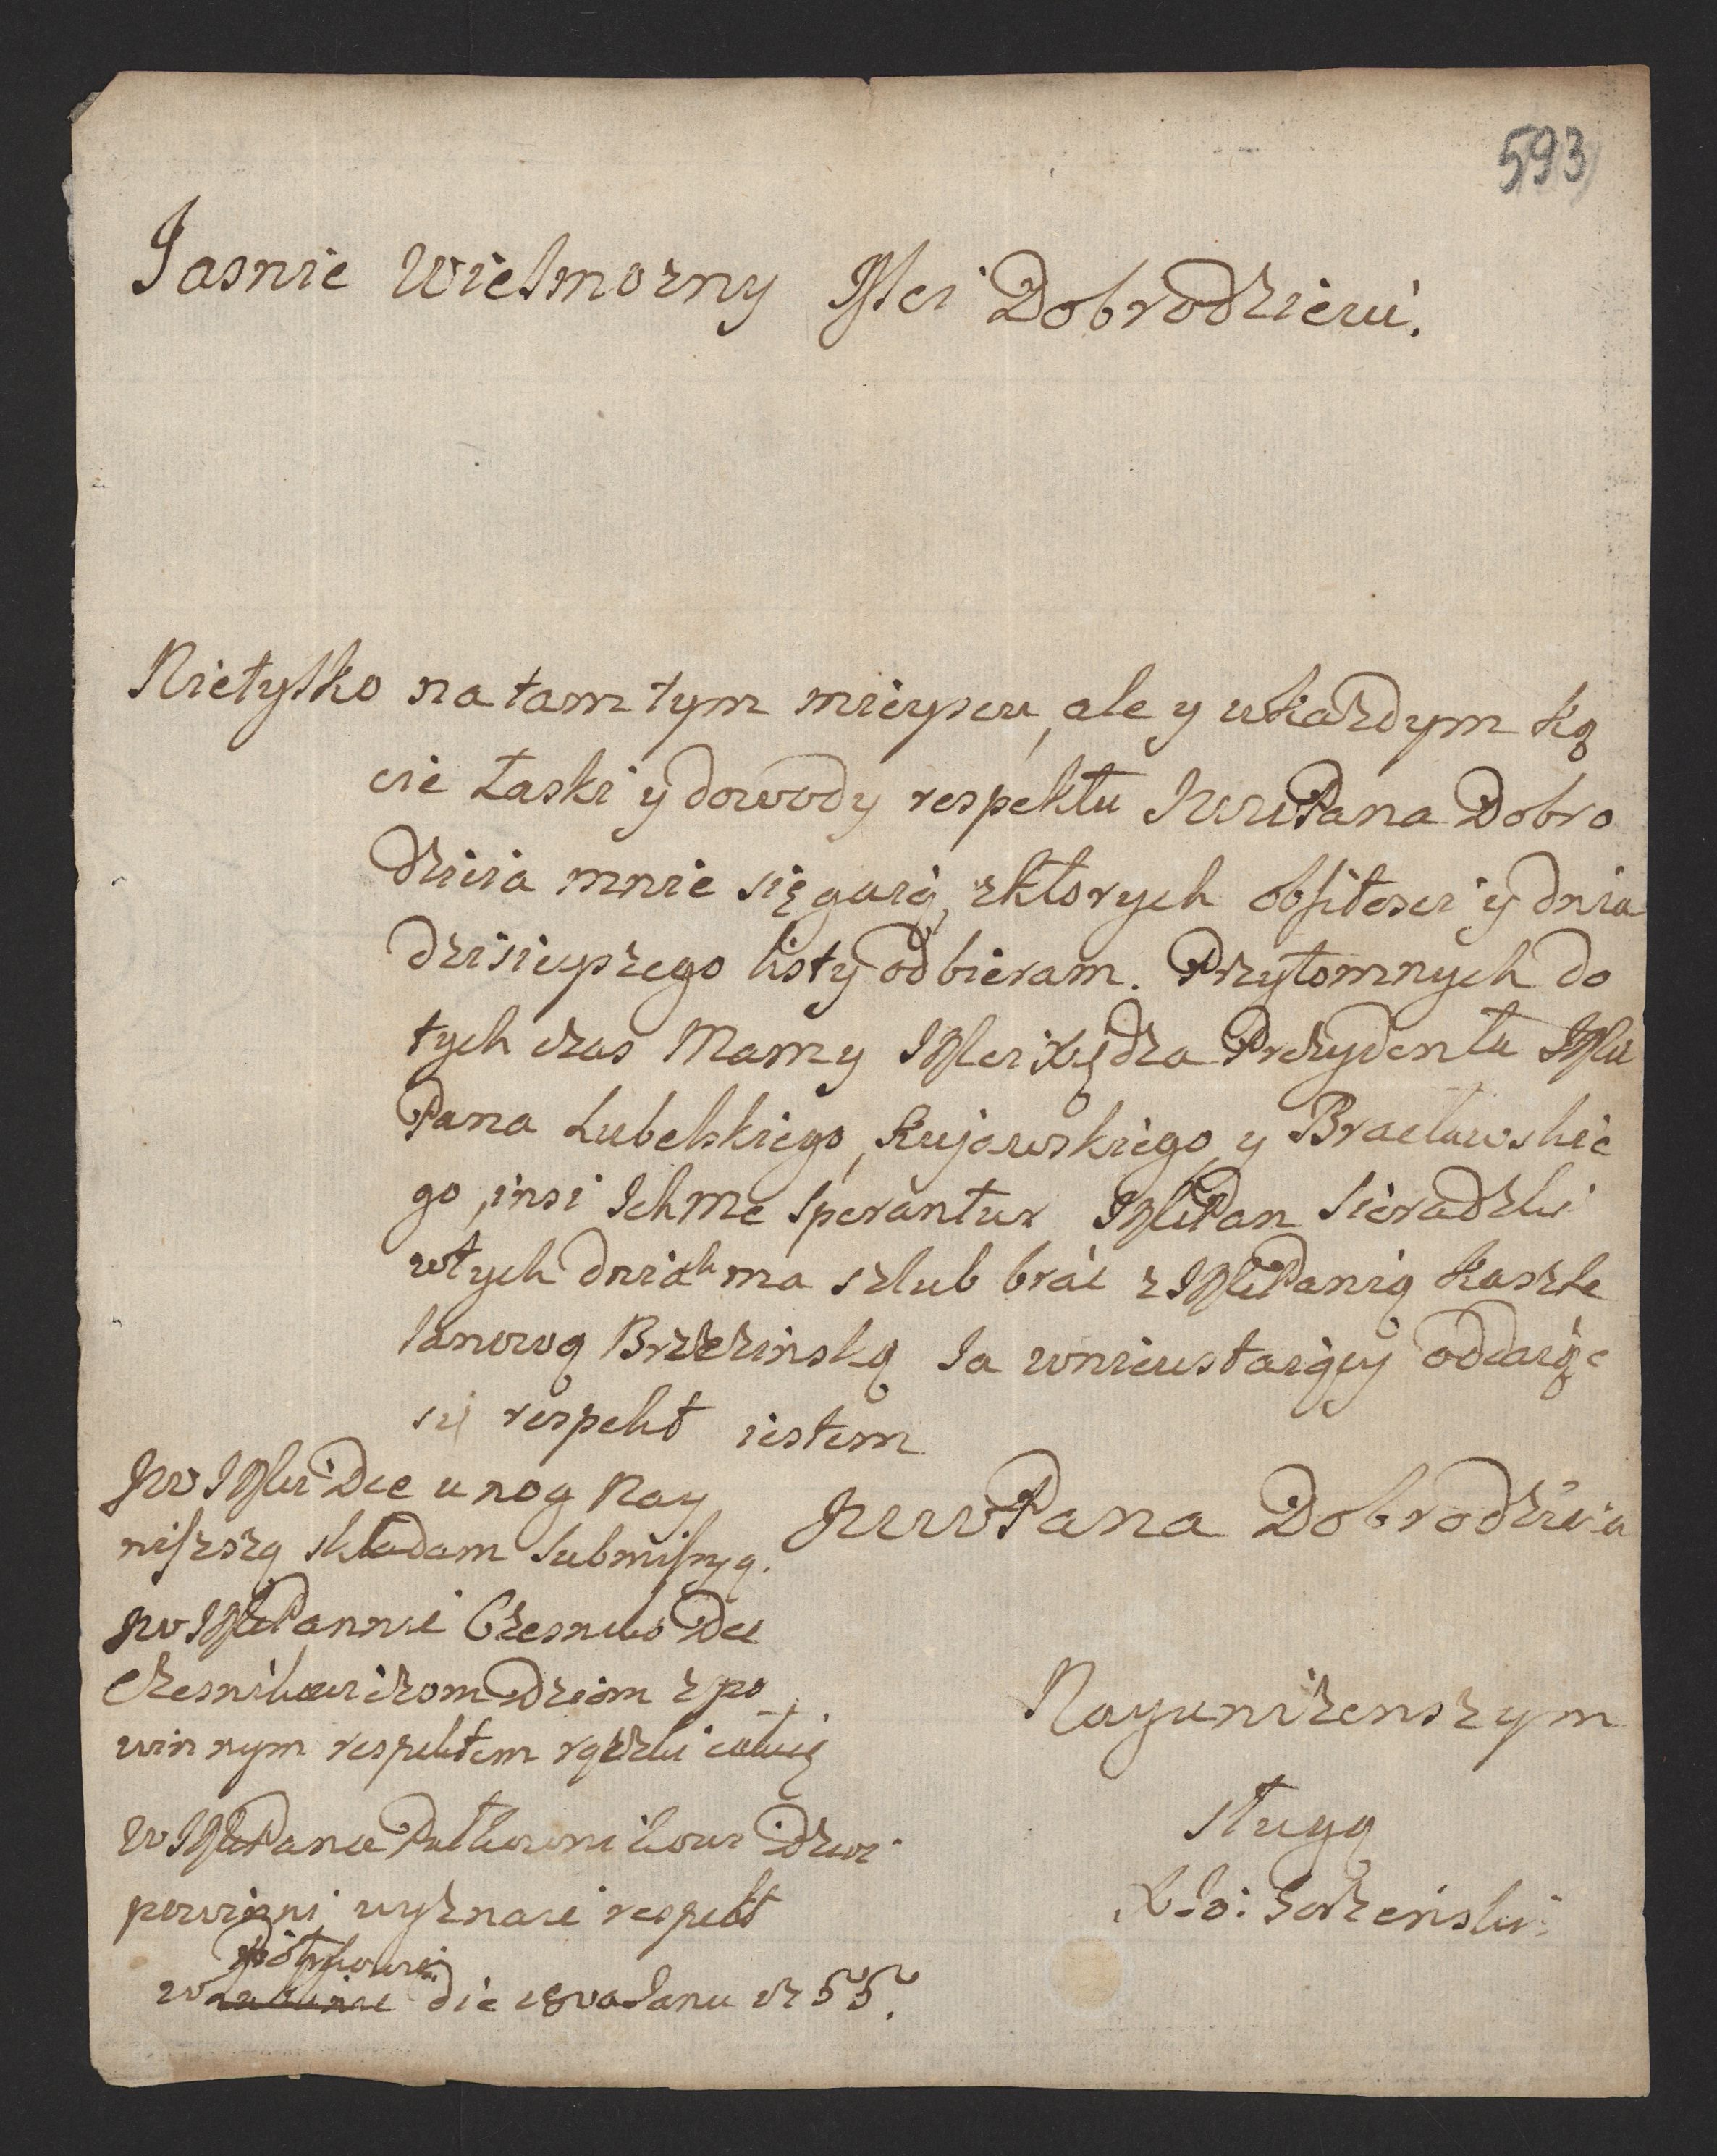 593
Jasnie Wielmozny Mci Dobrodzieiu.
Nietylko na tam tym mieyscu, ale y wkazdym ką
cie Łaski y dowody respektu JWWPana Dobro
dzieia mnie się garią, zktorych obfitosci y dnia
dzisieyszego listy odbieram. Przytomnych do
tych czas Mamy JMci Xiędza Prezydenta JMci
Pana Lubelskiego, Kujawskiego y Bracławskie
go, insi Ichme sperantur JMci Pan Sieradzki
wtych dniach ma szlub brać z JMci Panią Kaszte
lanową Brzezinską Ja wnieustaiący oddaiąc
się respekt iestem
JWWPana Dobrodzieia
Nayunizenszym
sługą
JW JMci Dce u nog Nay
niższą składam submissyą.
JW JMci Pannie Czesnikо Dce
Czesnikowiczom Dziom z po
winnym respektem rączki całuię
W JMci Pana Pułkownikowi Dzwi
powinni wyznaie respekt
Piotrkowie
w die 18va Janu 1755.